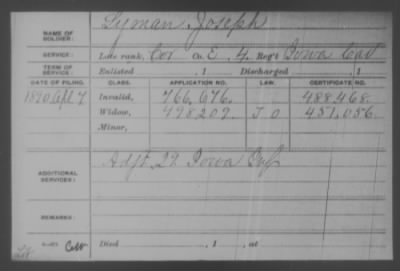 NAME OF SOLDIER: Lyman Joseph
SERVICE: Late rank, Cor Co. E, 4, Reg't Iowa Cav
TERM OF SERVICE: Enlisted , 1 Discharged , 1
DATE OF FILING. CLASS. APPLICATION NO. LAW. CERTIFICATE NO.
1890 Apl 7 Invalid, 766.676. 488.468.
Widow, 498.209. J O 451.056.
Minor,
ADDITIONAL SERVICES: Adjt. 29 Iowa Inf
REMARKS:
Died , 1 , at